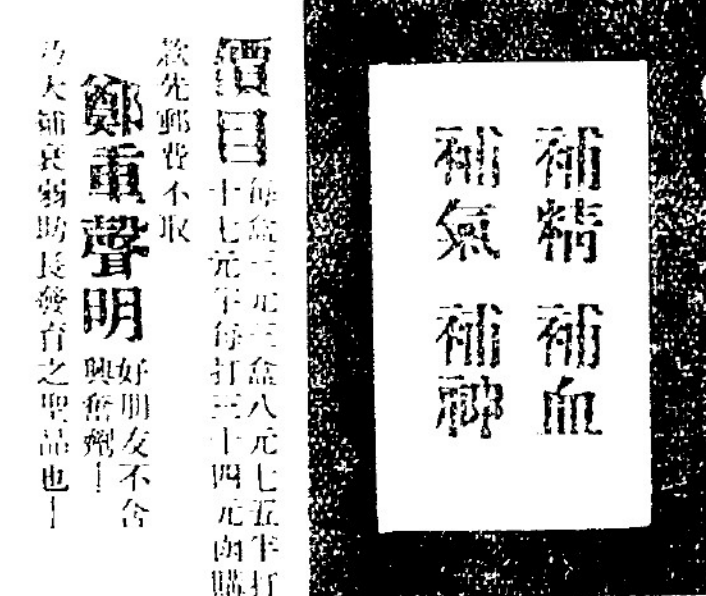 補精補血
補氣補神
價目
每盒三元三盒八元七五半打
十七元半每打三十四元函購
款先郵費不取
鄭重聲明
好朋友不含
興奮劑！
乃大補衰弱助長發育之聖品也！